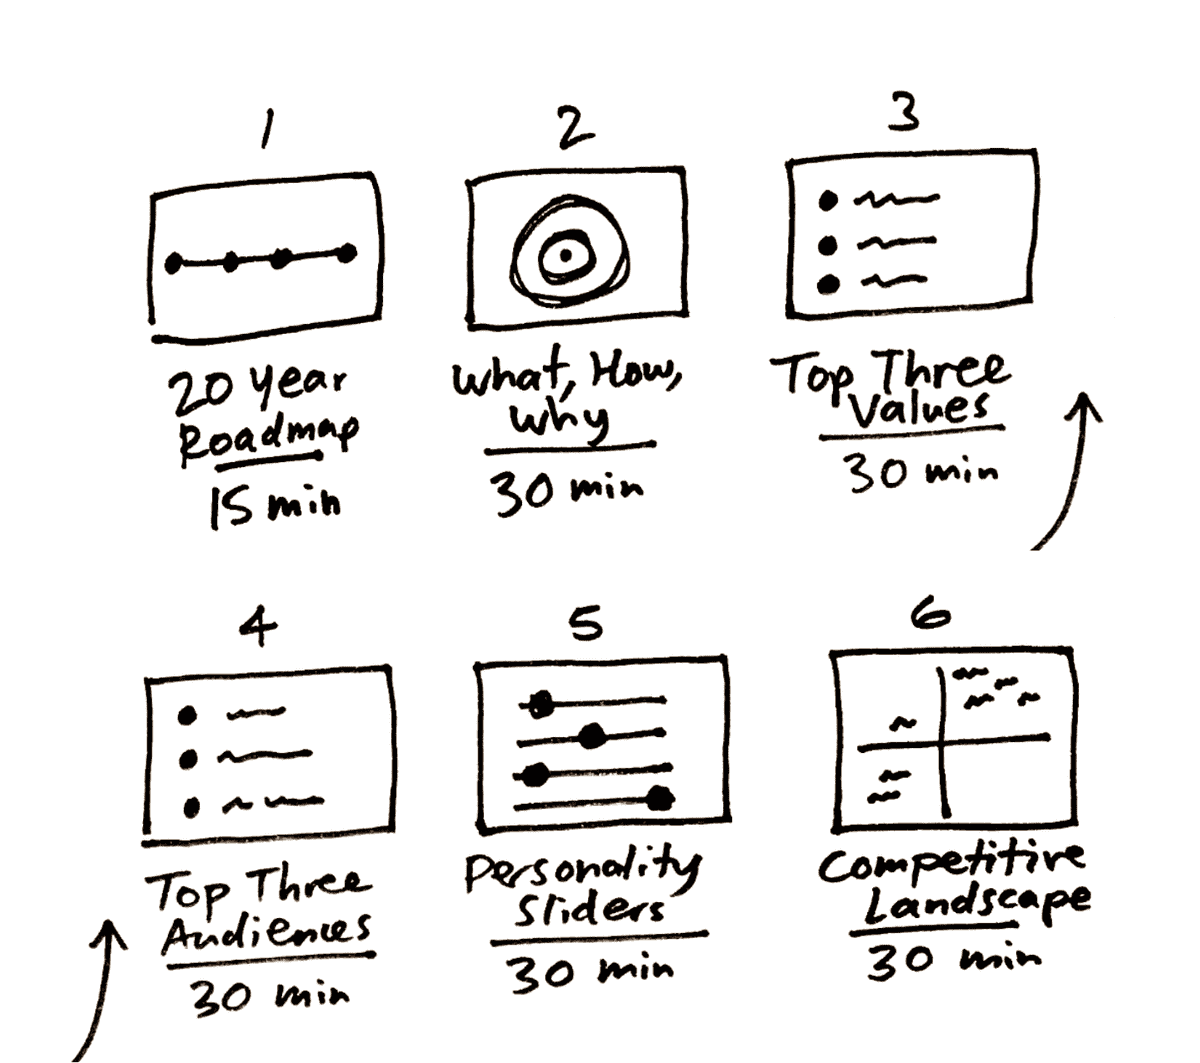 1
2
3
20 Year
Roadmap
15 min
What, How,
Why
30 min
Top Three
Values
30 min
4
5
6
Top Three
Audiences
30 min
Personality
Sliders
30 min
Competitive
Landscape
30 min